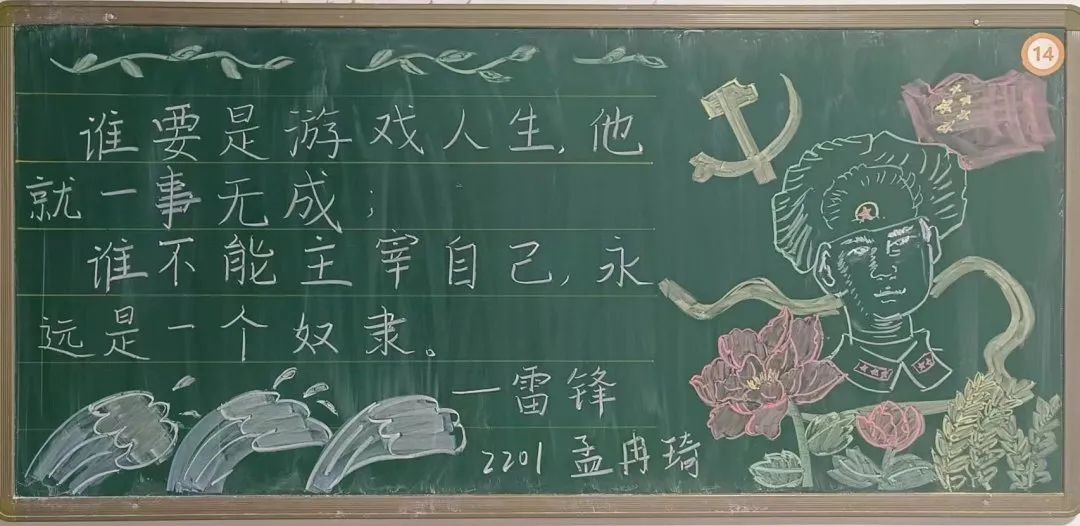 14
谁要是游戏人生,他
就一事无成;
谁不能主宰自己,永
远是一个奴隶。
—雷锋
2201 孟冉琦